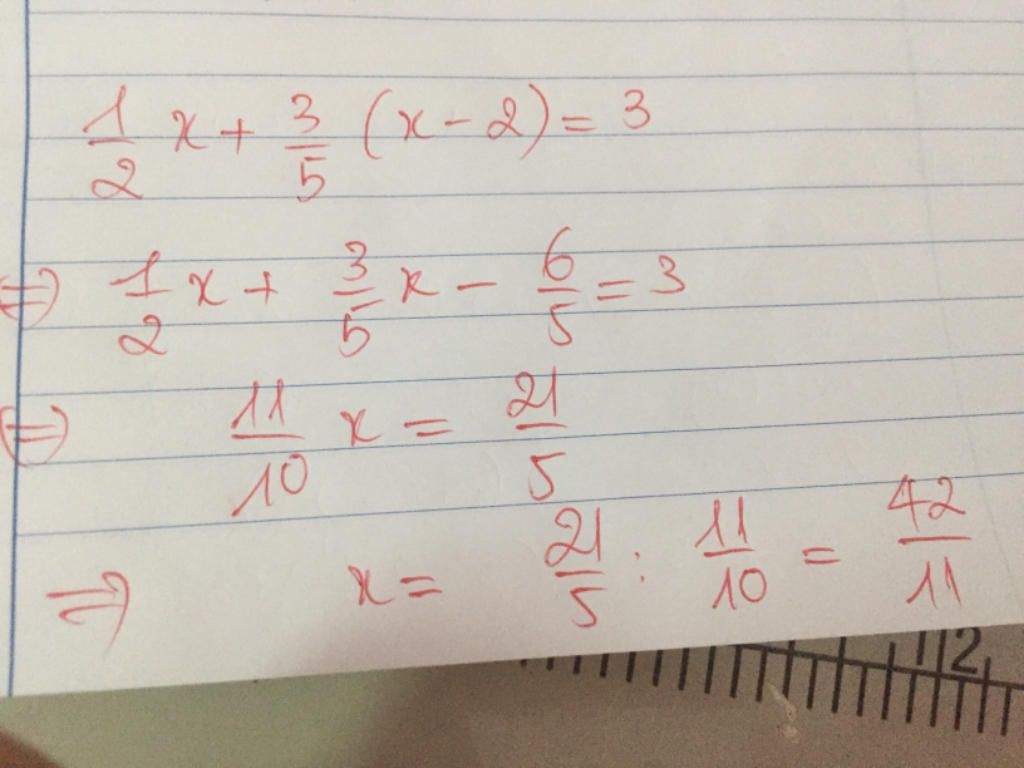 1/2 x + 3/5 (x - 2) = 3
⇔ 1/2 x + 3/5 x - 6/5 = 3
⇔ 11/10 x = 21/5
⇒ x = 21/5 : 11/10 = 42/11
12